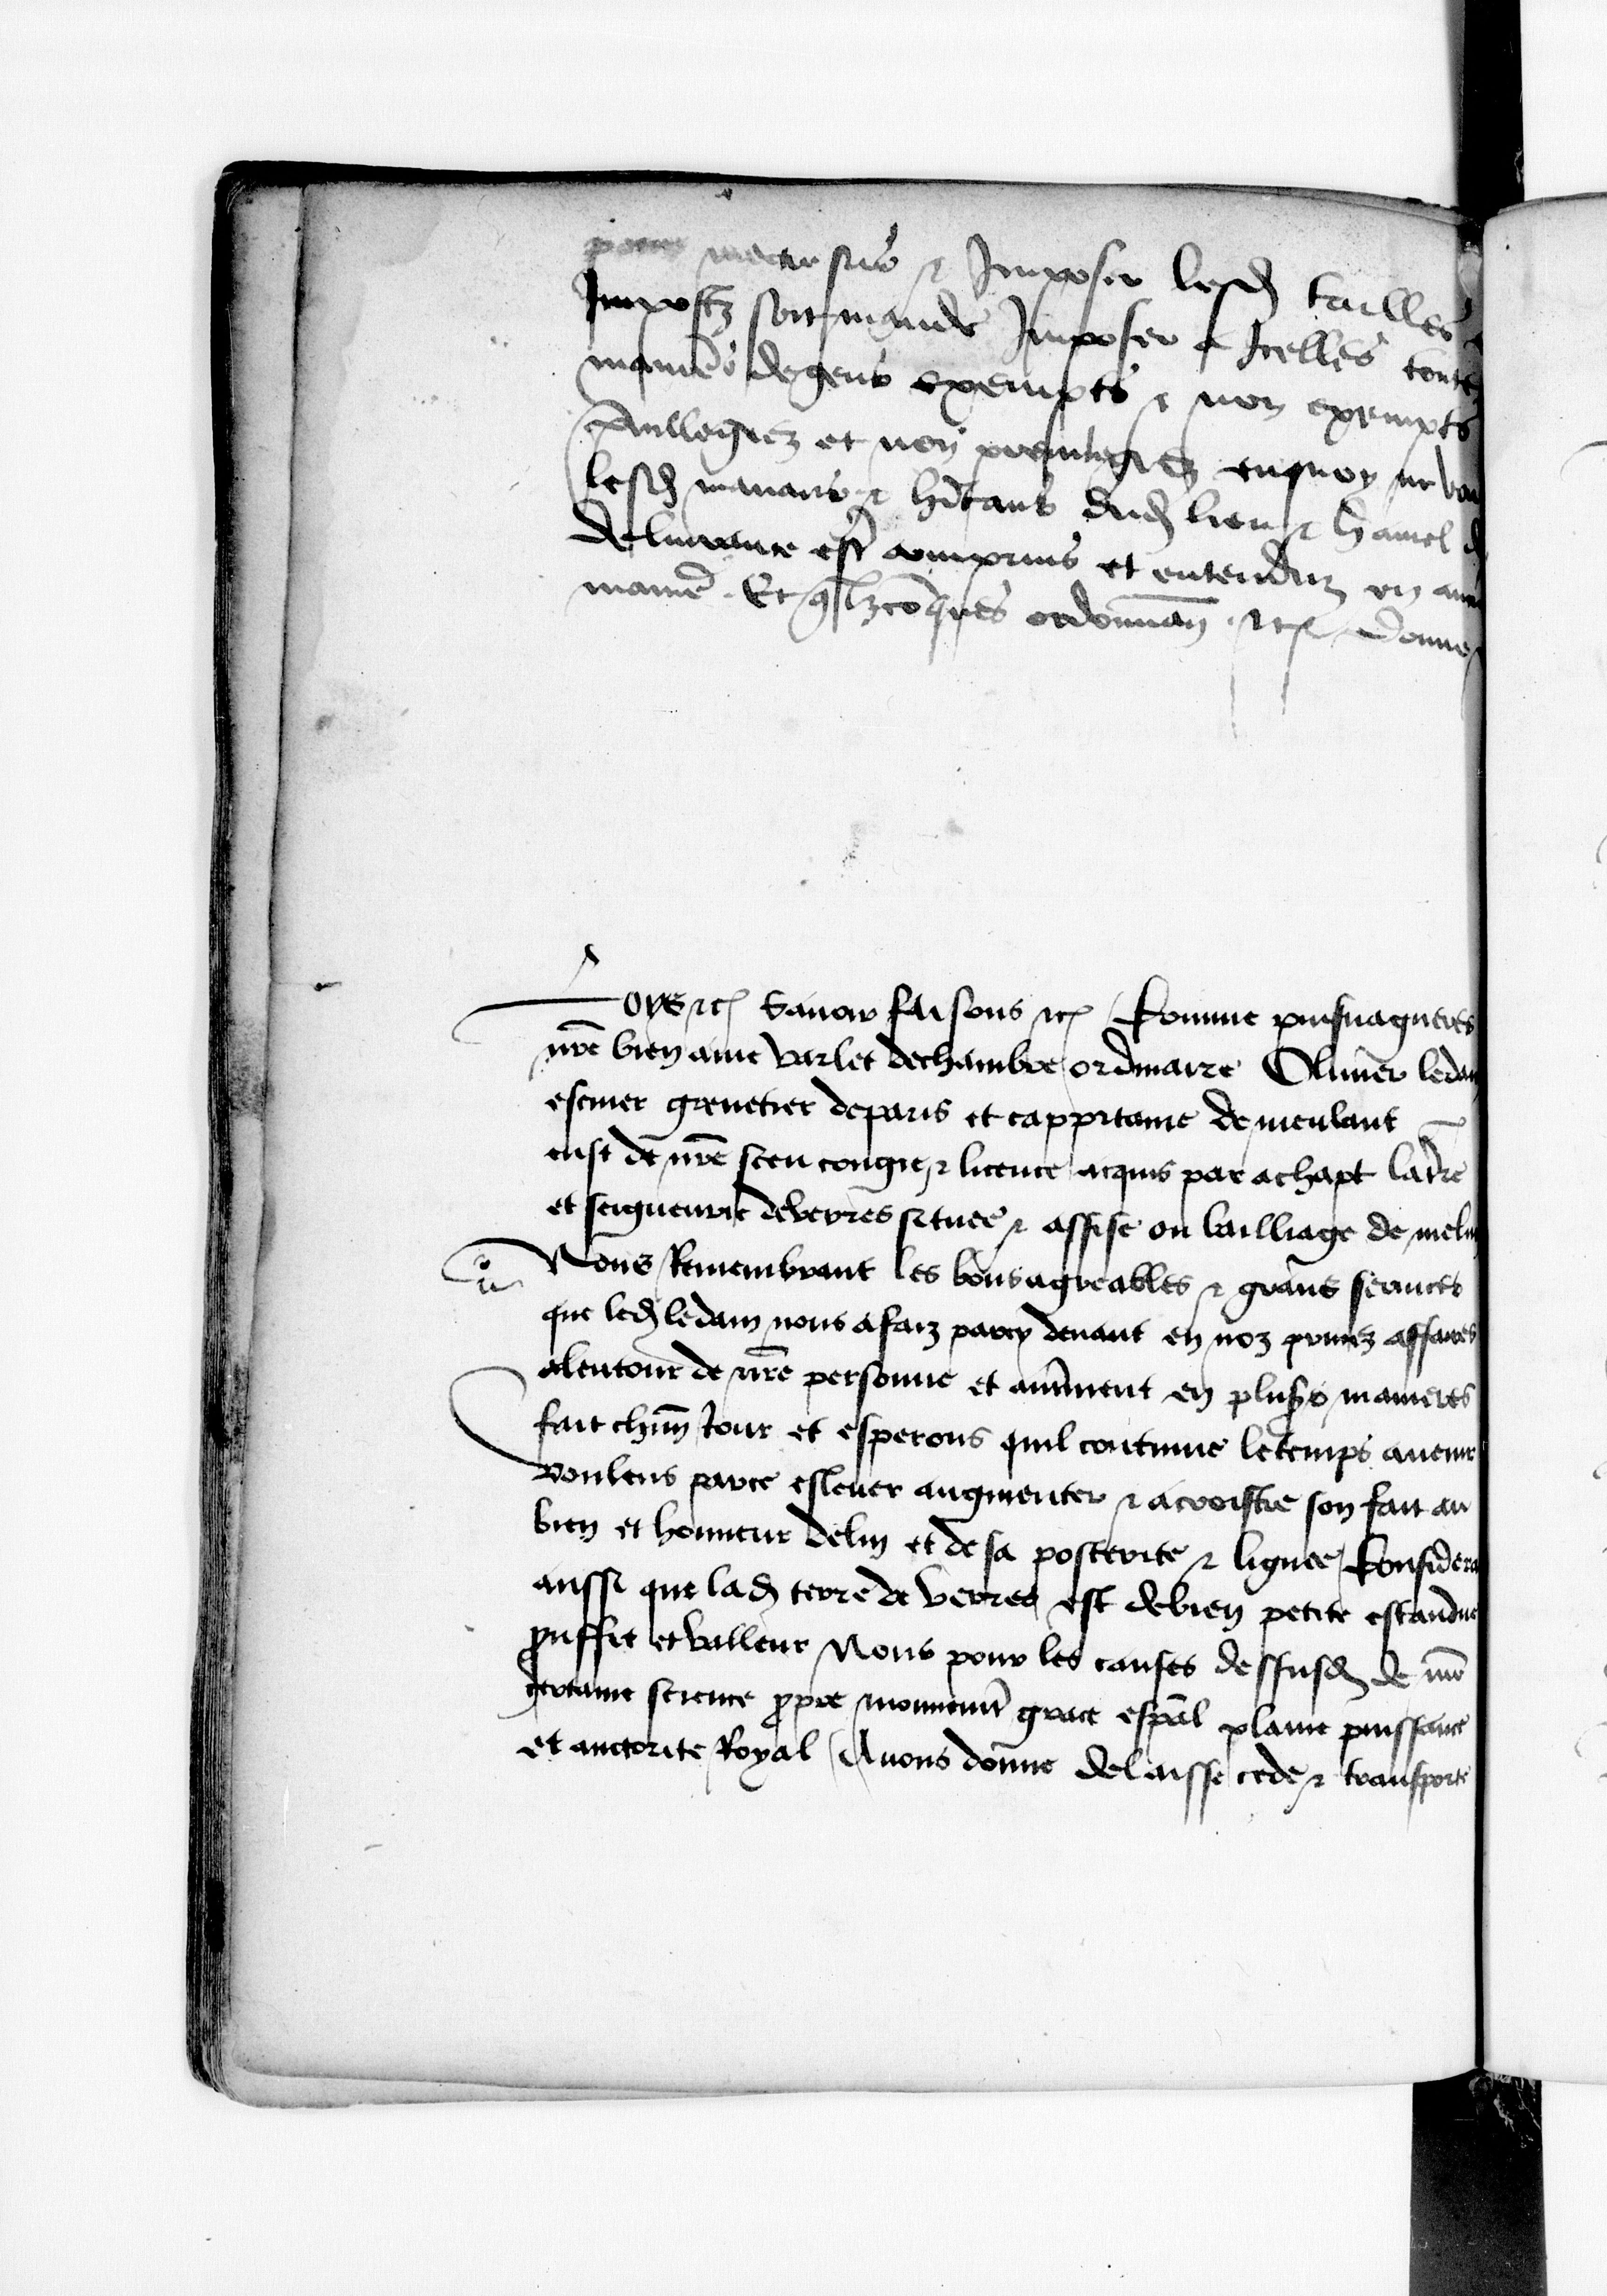 pour mectre sus et Imposer lesd tailles
Impostz soit mande Imposer a Icelles toutes
manieres de gens exempts et non exempts
Privillegiez et non previlegiez enquoy ne
lesd manans et hitans dud lieu et hamel
de estre comprins et entenduz en
maniere. Et qlzcoques ordonnan etc. Donne
Loys etc Savoir faisons etc Comme puisnagueres
nre bien ame varlet de chambre ordinaire Olivier ledain
escuier grenetier de paris et cappitaine de meulant
eust de nre sceu congie et licence acquis par achapt la tre
et seigneurie de verres situee et assise ou bailliage de melun
Nous Remembrant les bons agreables et grans services
que led ledain nous a faiz parcy devant en noz privez affaires
alentour de nre personne et autrement en plusrs manieres
fait chun Jour et esperons quil continue le temps avenir
voulens parce eslever augmenter et acroistre son fait au
bien et honneur de luy et de sa posterite et lignee Considera
aussi que lad terre de verres est de bien petite estandue
prouffit et valleur Nous pour les causes dessusd de nre
certaine science propre mouvemt grace espal plaine puissance
et auctorite Royal Avons donne delaisse cede et transporte